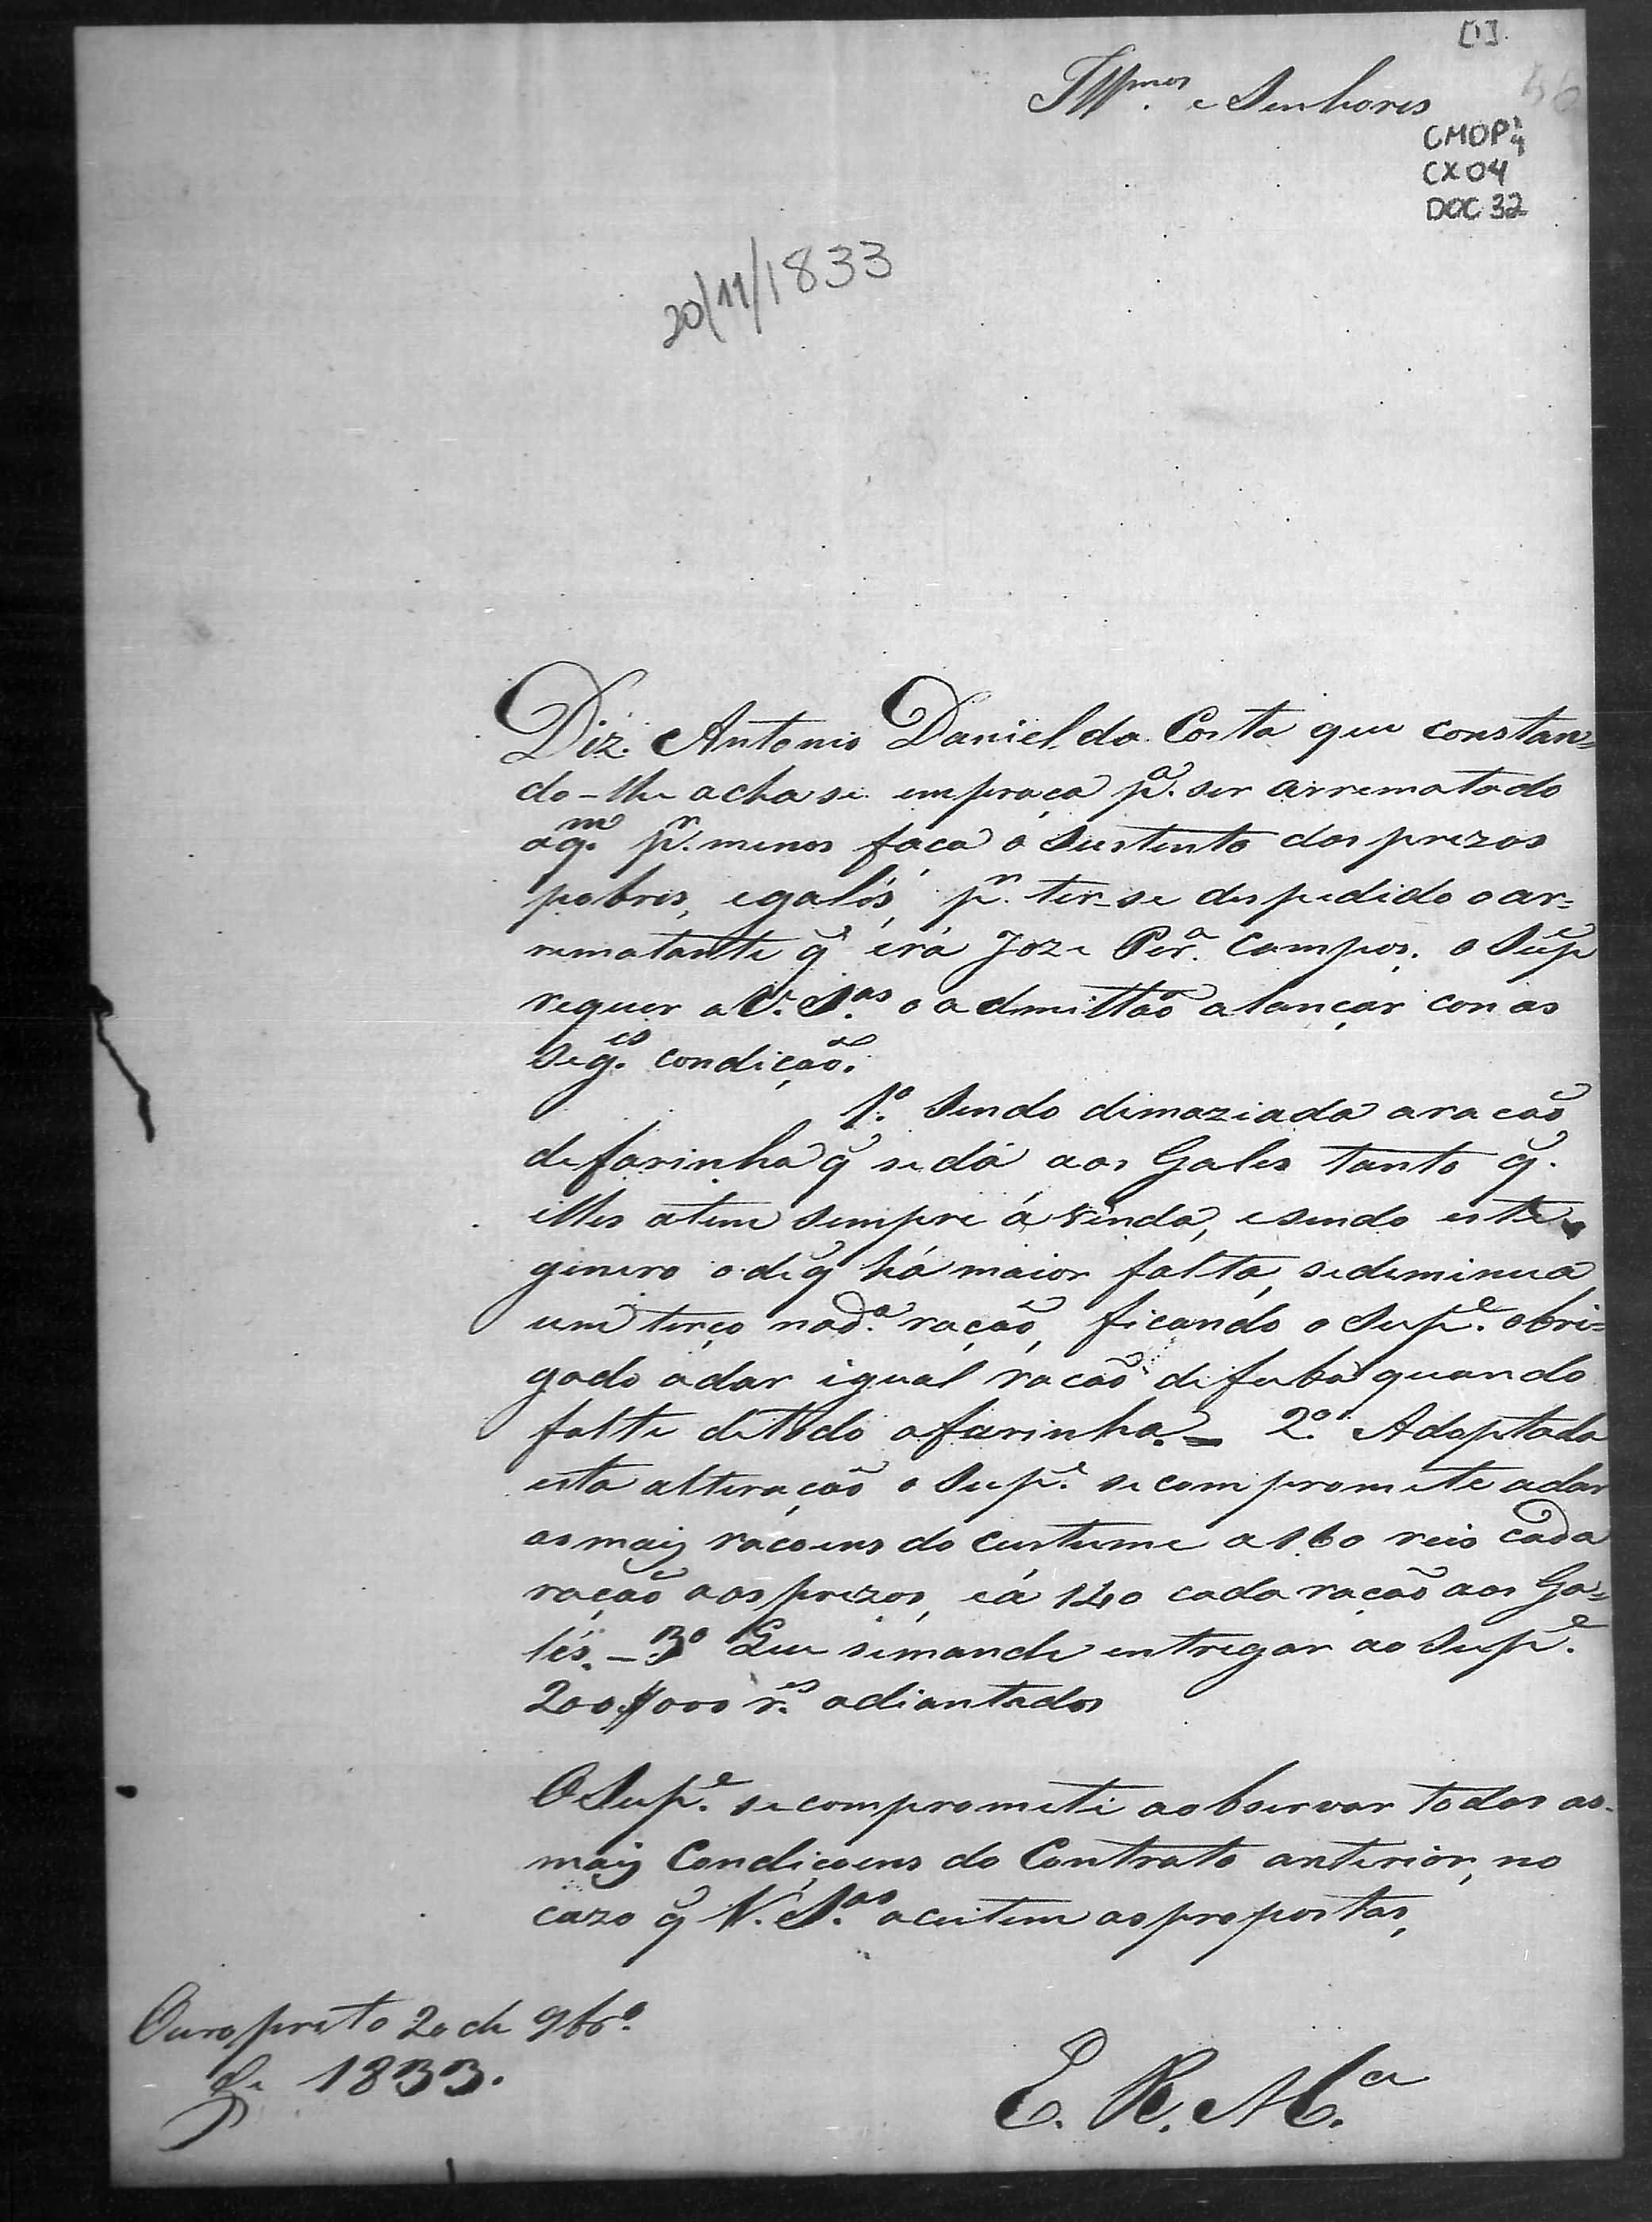 [1].
Illmos. e Senhores
CMOP
CX 04
DOC 32
20/11/1833
Diz. Antonio Daniel da Costa que constan=
do-lhe achase em praça pa. ser arrematado
a qm. pr. menos faça o sustento dos prezos
pobres, e galés, pr. ter-se despedido o ar=
rematante q̃ éra Joze Pera. Campos. o Supe
requer a V. Sas. o admittão a lançar con as
seges. condição.
1.º Sendo demaziada a ração
de farinha q̃ se dá aos Gales tanto q̃.
elles a tem sempre á venda, e sendo este
genero o de q̃ há maior falta, se deminua
um terço na da. ração, ficando o Supe. obri=
gado a dar igual ração de fuba quando
falte de todo a farinha. = 2.º Adoptada
esta alteração o Supe. se compromete a dar
as mais raçoens do custume a 160 reis cada
ração aos prezos, e á 140 cada ração aos Ga=
lés. - 3º Que se mande entregar ao Supe.
200$000 rs. adiantados
O Supe. se compromete a observar todas as
mais Condiçoens do Contrato anterior, no
cazo q̃ V. Sas. aceitem as propostas,
Ouro preto 20 de 9bro.
de 1833.
E. R. Mca.